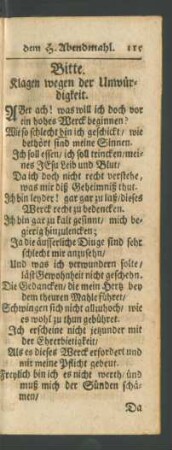 dem H. Abendmahl. 115
Bitte.
Klagen wegen der Unwür-
digkeit.
ABer ach! was will ich doch vor
ein hohes Werck beginnen?
Wie so schlecht bin ich geschickt/ wie
bethört sind meine Sinnen.
Ich soll essen/ ich soll trincken/ mei-
nes JEsu Leib und Blut/
Da ich doch nicht recht verstehe/
was mir diß Geheimniß thut.
Ich bin leyder! gar gar zu laß/ dieses
Werck recht zu bedencken.
Ich bin gar zu kalt gesinnt/ mich be-
gierig hinzulencken;
Ja die äusserliche Dinge sind sehr
schlecht mir anzusehn/
Und was ich verwundern solte/
läst Gewohnheit nicht geschehn.
Die Gedancken/ die mein Hertz bey
dem theuren Mahle führet/
Schwingen sich nicht allzuhoch/ wie
es wohl zu thun gebühret.
Ich erscheine nicht jetzunder mit
der Ehrerbietigkeit/
Als es dieses Werck erfordert und
mit meine Pflicht gebeut.
Freylich bin ich es nicht werth/ und
muß mich der Sünden schä-
men/
Da